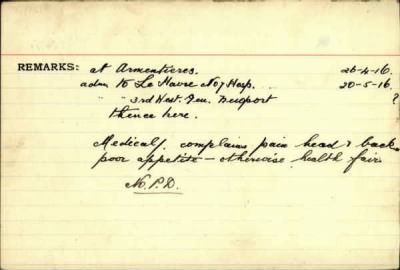 REMARKS: at Armentieres. 26-4-16.
adm to Le Havre No 7 Hosp. .. 20-5-16.
" " 3rd West. Gen. Newport ?
thence here.
Medically. complains pain head & back
poor appetite — otherwise health fair
N.P.D.